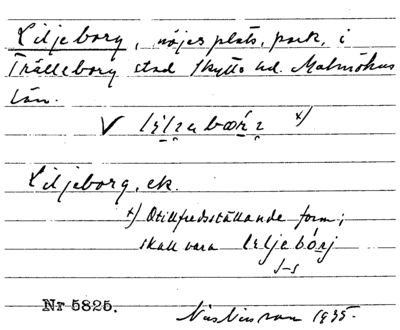 Liljeborg, nöjesplats, park, i
Trälleborg stad Skytts hd. Malmöhus
län.
V x)
Liljeborg, ek.
x) Otillfredsställande form;
skall vara leljebórj
J-s
Nr 5825.
1935.